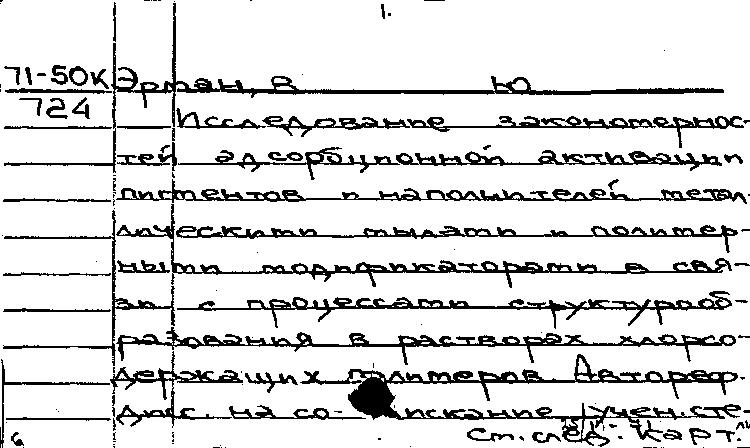 1.
71-50К Эрман, В Ю
724
Исследование закономернос-
тей адсорбционной активации
пигментов и наполнителей метал-
лическими мылами и полимер-
ными модификаторами в свя-
зи с процессами структурооб-
разования в растворах хлорсо-
держащих полимеров. Автореф.
дисс. на со- искание учен. сте-
См. след. карт.